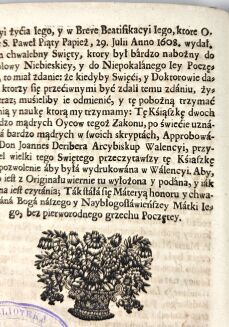 yi życia Iego, y w Breve Beatifikacyi Iego, ktore O.
S. Paweł Piąty Papież, 29. Julii Anno 1608, wydał.
n chwalebny Swięty, ktory był bardzo nabożny do
lowy Niebieskiey, y do Niepokalánego Iey Poczę-
, to miał zdanie: że kiedyby Swięći, y Doktorowie da-
ktorzy się przećiwnymi być zdali temu zdániu, ży-
eraz; musieliby ie odmienić, y tę pobożną trzymać
nią y naukę ktorą my trzymamy: Tę Kśiąszkę dwoch
o mądrych Oycow tegoż Zakonu, po świeże uzná-
á bardzo mądrych w swoich skryptách, Approbowá-
Don Joannes Deribera Arcybiskup Walencyi, przy-
iel wielki tego Swiętego przeczytawszy tę Kśiąszkę
pozwolenie aby była wydrukowána w Walencyi. Aby,
a iest z Originału wiernie tu wyłożona y podána, y iák
a iest czytánia; Ták stáłá się Máteryą honoru y chwa-
ána Bogá nászego y Nayblogosłáwieńszey Mátki Ie-
go, bez pierworodnego grzechu Poczętey.